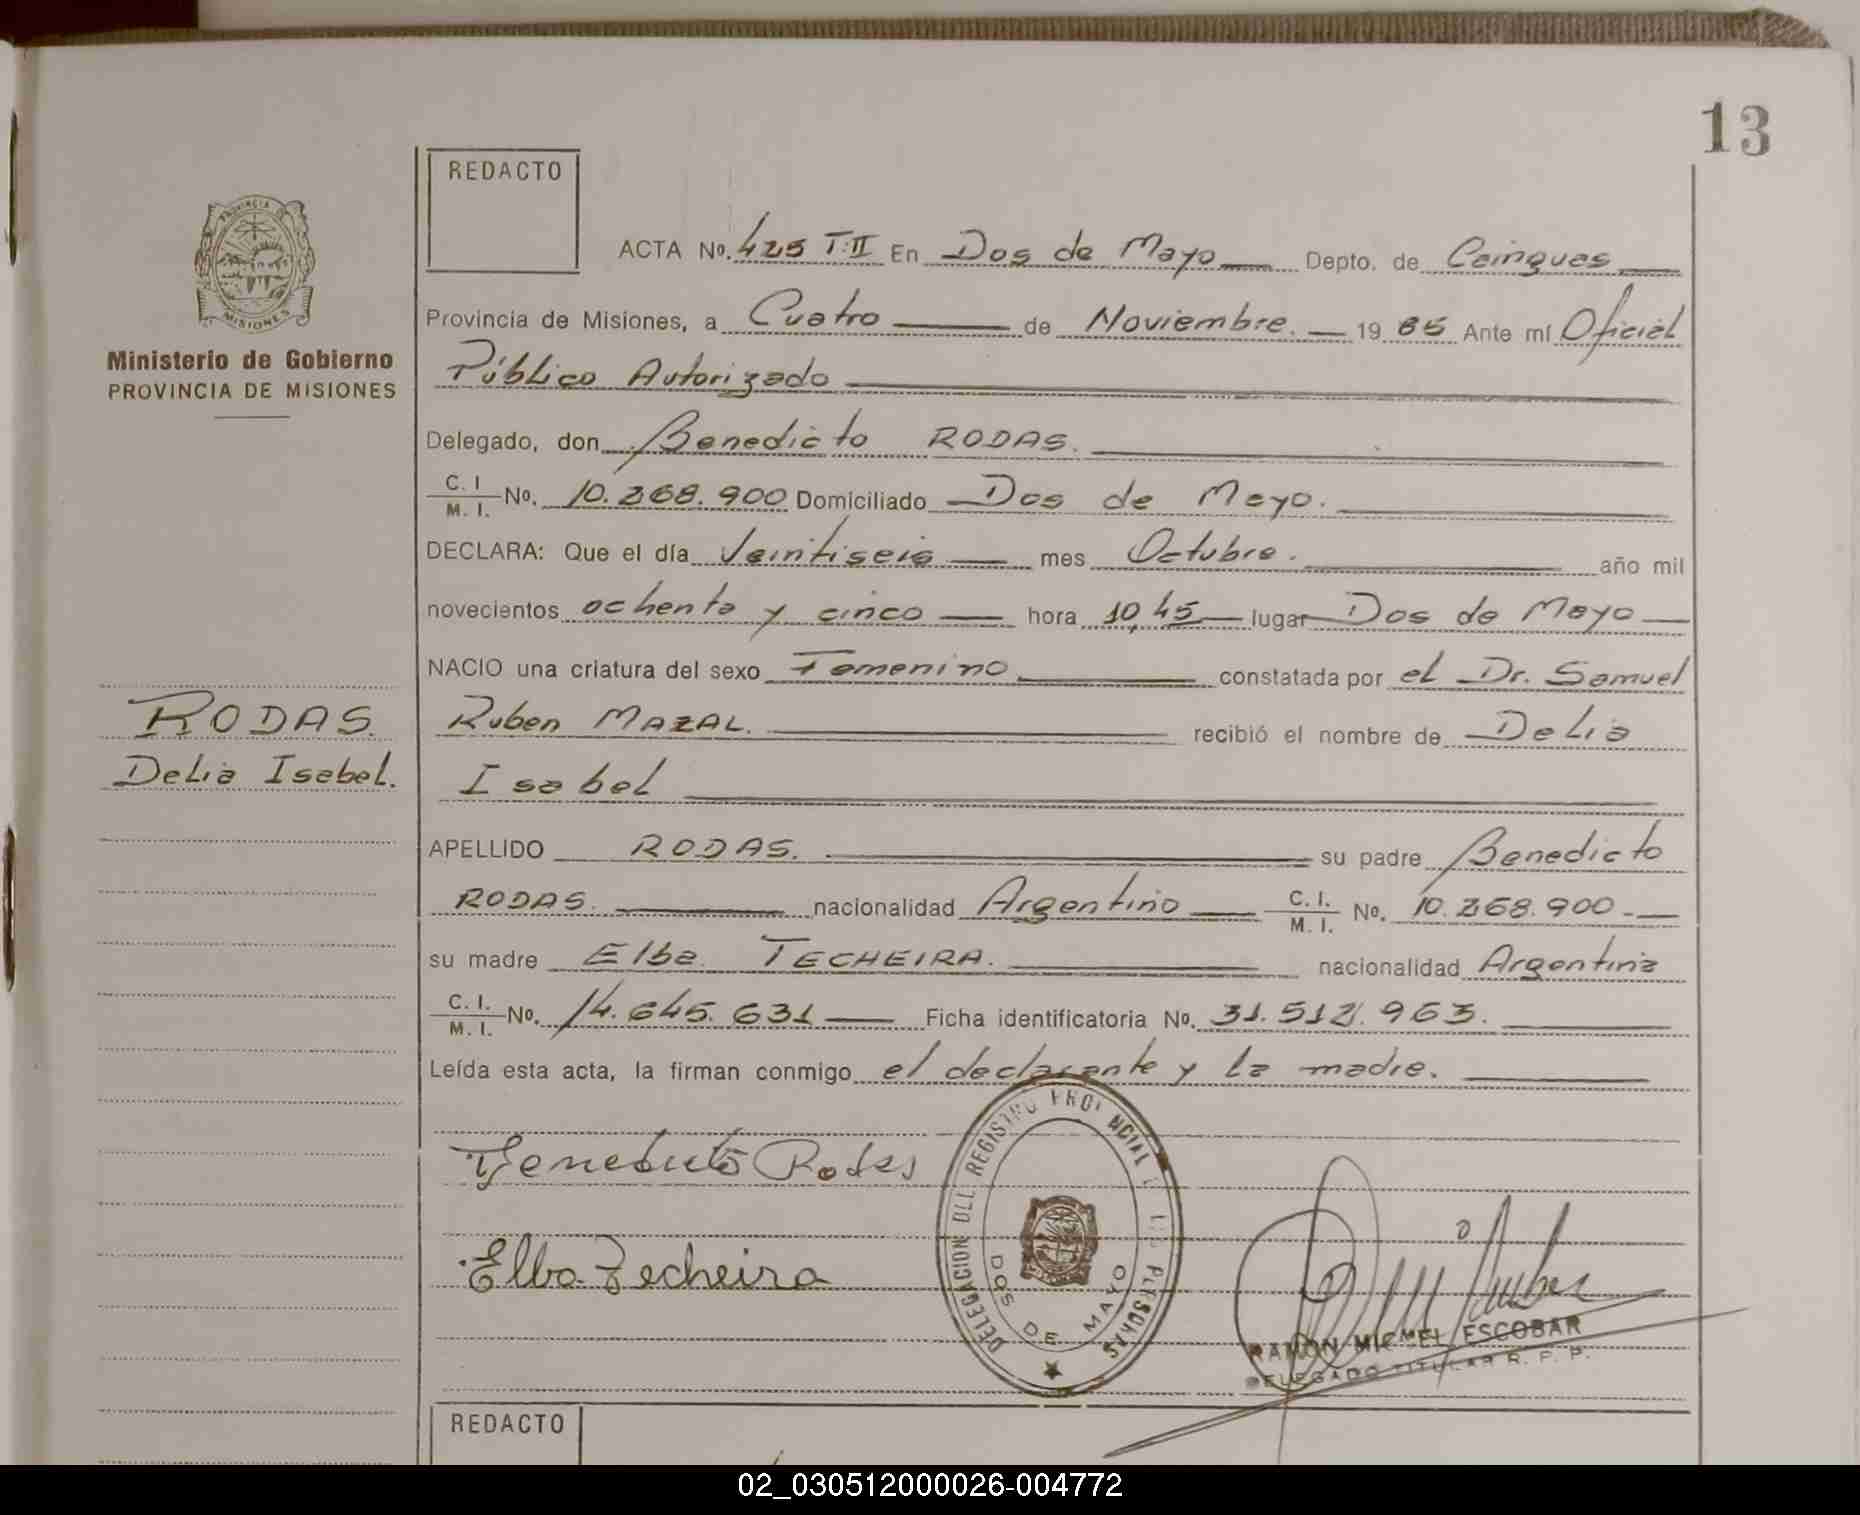 13
REDACTO
ACTA No. 425 T:II En Dos de Mayo Depto. de Cainguas
PROVINCIA DE
MISIONES
Provincia de Misiones, a Cuatro de Noviembre. 19 85 Ante mí Oficial
Ministerio de Gobierno
PROVINCIA DE MISIONES
Público Autorizado
Delegado, don Benedicto RODAS.
C. I. / M. I. No. 10.268.900 Domiciliado Dos de Mayo.
DECLARA: Que el día Veintiseis mes Octubre. año mil
novecientos ochenta y cinco hora 10,45 lugar Dos de Mayo
NACIO una criatura del sexo Femenino constatada por el Dr. Samuel
RODAS.
Delia Isabel.
Ruben MAZAL. recibió el nombre de Delia
Isabel
APELLIDO RODAS. su padre Benedicto
RODAS. nacionalidad Argentino C. I. / M. I. No. 10.268.900-
su madre Elba TECHEIRA. nacionalidad Argentina
C. I. / M. I. No. 14.645.631 Ficha identificatoria No. 31.512.963.
Leída esta acta, la firman conmigo el declarante y la madre.
Benedicto Rodas
Elba Techeira
DELEGACION DEL REGISTRO PROVINCIAL DE LAS PERSONAS
DOS DE MAYO
RAMON MIGUEL ESCOBAR
DELEGADO TITULAR R. P. P.
REDACTO
02_030512000026-004772